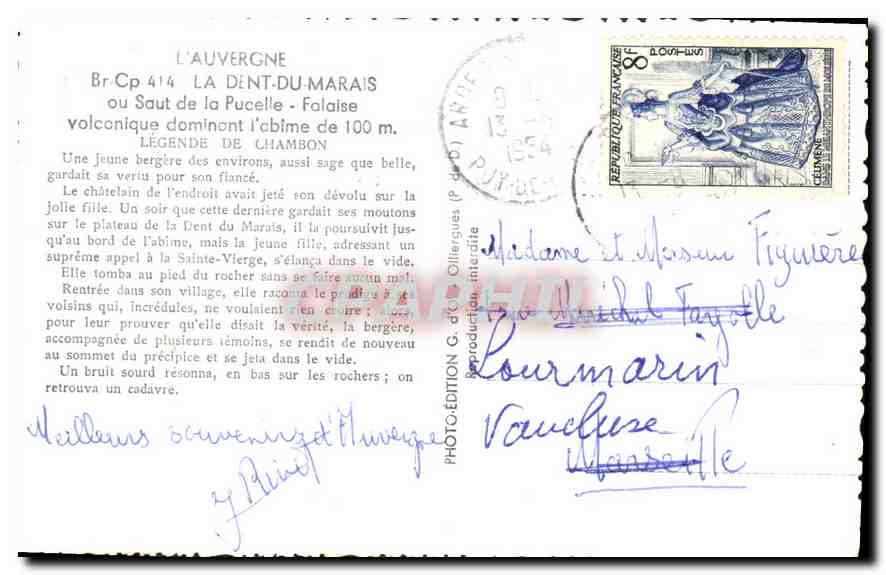 L'AUVERGNE
Br-Cp 414 LA DENT-DU-MARAIS
ou Saut de la Pucelle - Falaise
volcanique dominant l'abîme de 100 m.
LÉGENDE DE CHAMBON
Une jeune bergère des environs, aussi sage que belle,
gardait sa vertu pour son fiancé.
Le châtelain de l'endroit avait jeté son dévolu sur la
jolie fille. Un soir que cette dernière gardait ses moutons
sur le plateau de la Dent du Marais, il la poursuivit jus-
qu'au bord de l'abîme, mais la jeune fille, adressant un
suprême appel à la Sainte-Vierge, s'élança dans le vide.
Elle tomba au pied du rocher sans se faire aucun mal.
Rentrée dans son village, elle raconta le prodige à ses
voisins qui, incrédules, ne voulaient rien croire ; alors,
pour leur prouver qu'elle disait la vérité, la bergère,
accompagnée de plusieurs témoins, se rendit de nouveau
au sommet du précipice et se jeta dans le vide.
Un bruit sourd résonna, en bas sur les rochers ; on
retrouva un cadavre.
Meilleurs souvenirs d'Auvergne
PHOTO-ÉDITION G. d'O. Olliergues (P. de D.)
Reproduction interdite
8F
POSTES
RÉPUBLIQUE FRANÇAISE
CÉLIMÈNE
13
1954
PUY-DE-D
Madame et Monsieur Figuière
Rue Maréchal Fayolle
Lourmarin
Vaucluse
Marseille